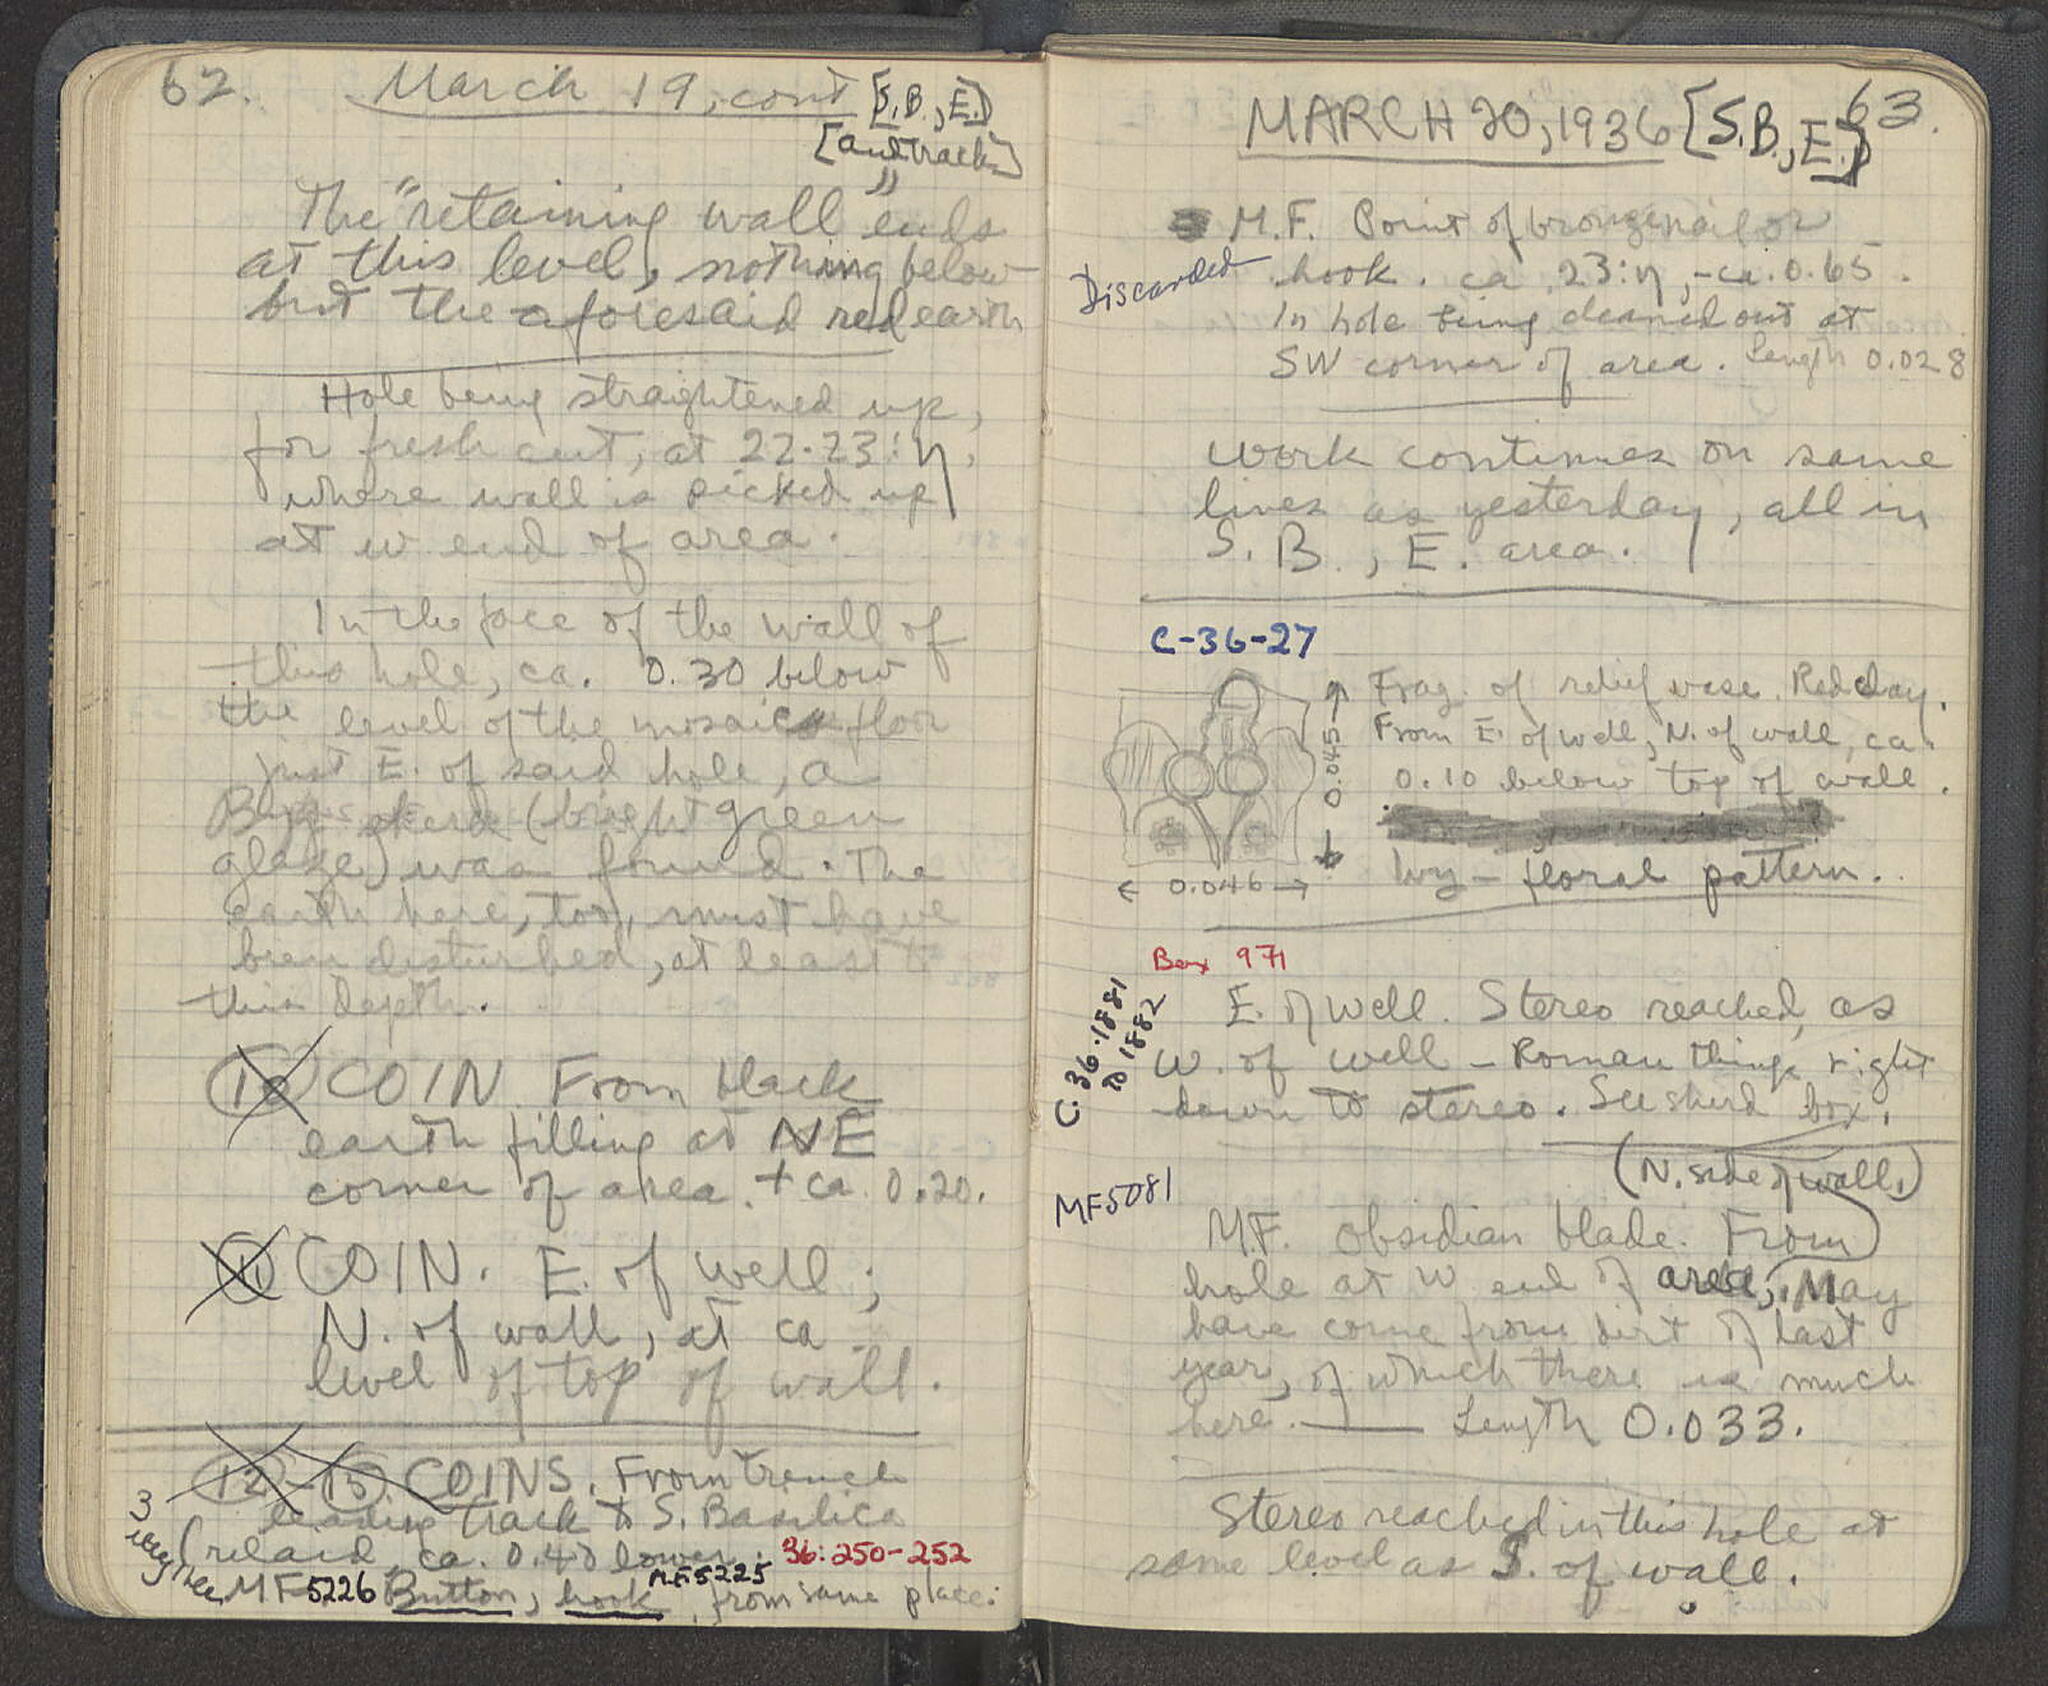 62. March 19, cont [S.B., E.]
[and track]
The "retaining wall" ends
at this level, nothing below
but the aforesaid red earth
Hole being straightened up,
for fresh cut, at 22-23:η,
where wall is picked up
at W end of area.
In the face of the wall of
this hole, ca. 0.30 below
the level of the mosaic floor
just E. of said hole, a
Byz. sherd (bright green
glaze) was found. The
earth here, too, must have
been disturbed, at least to
this depth.
10 COIN. From black
earth filling at NE
corner of area. + ca 0.20.
11 COIN. E. of well;
N. of wall, at ca
level of top of wall.
12-15 COINS. From trench
leading track to S. Basilica
(relaid, ca. 0.40 lower. 36:250-252
3
MF5226 Button, hook MF5225, from same place.
63.
MARCH 20, 1936 [S.B., E.]
M.F. Point of bronze nail or
Discarded
hook. ca 23:η, -ca. 0.65.
In hole being cleaned out at
SW corner of area. Length 0.028
Work continues on same
lines as yesterday, all in
S.B., E. area.
C-36-27
Frag. of relief vase. Red clay.
From E. of well, N. of wall, ca.
0.10 below top of wall.
Ivy-floral pattern.
0.045
0.046
Box 971
C.36.1881
to 1882
E. of well. Stereo reached, as
W. of well - Roman things right
down to stereo. See sherd box.
(N. side of wall.)
MF5081
M.F. Obsidian blade. From
hole at W end of area, May
have come from dirt of last
year, of which there is much
here. — Length 0.033.
Stereo reached in this hole at
same level as S. of wall.